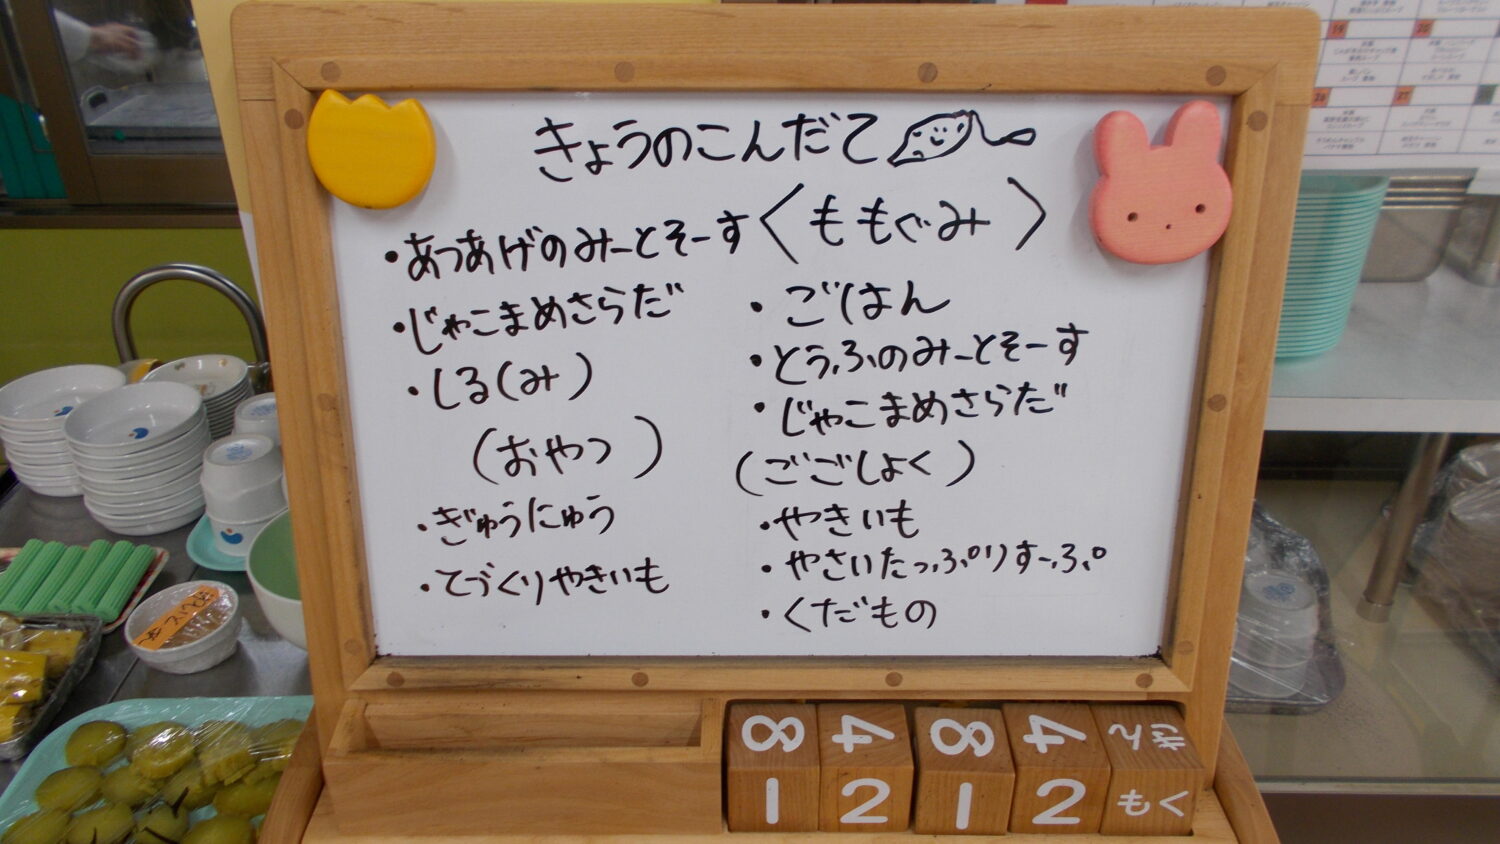 きょうのこんだて
・あつあげのみーとそーす
・じゃこまめさらだ
・しる(み)
(おやつ)
・ぎゅうにゅう
・てづくりやきいも
〈ももぐみ〉
・ごはん
・とうふのみーとそーす
・じゃこまめさらだ
(ごごしょく)
・やきいも
・やさいたっぷりすーぷ
・くだもの
8 4 8 4 きん
1 2 1 2 もく
19
20
26
27